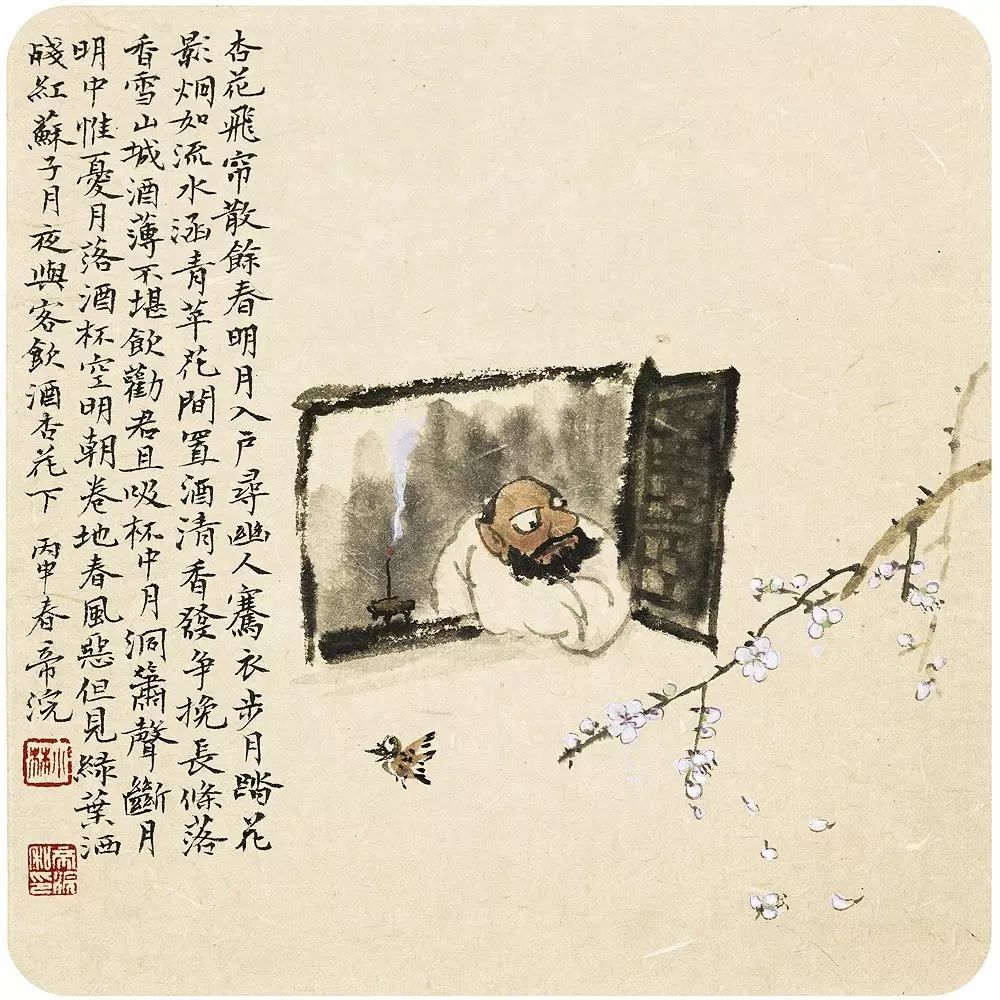 杏花飛帘散餘春明月入戶尋幽人騫衣步月踏花
影炯如流水涵青苹花間置酒清香發争挽長條落
香雪山城酒薄不堪飲勸君且吸杯中月洞簫聲斷月
明中惟憂月落酒杯空明朝卷地春風惡但見緑葉洒
殘紅蘇子月夜與客飲酒杏花下 丙申春帝浣
小林
帝浣私印